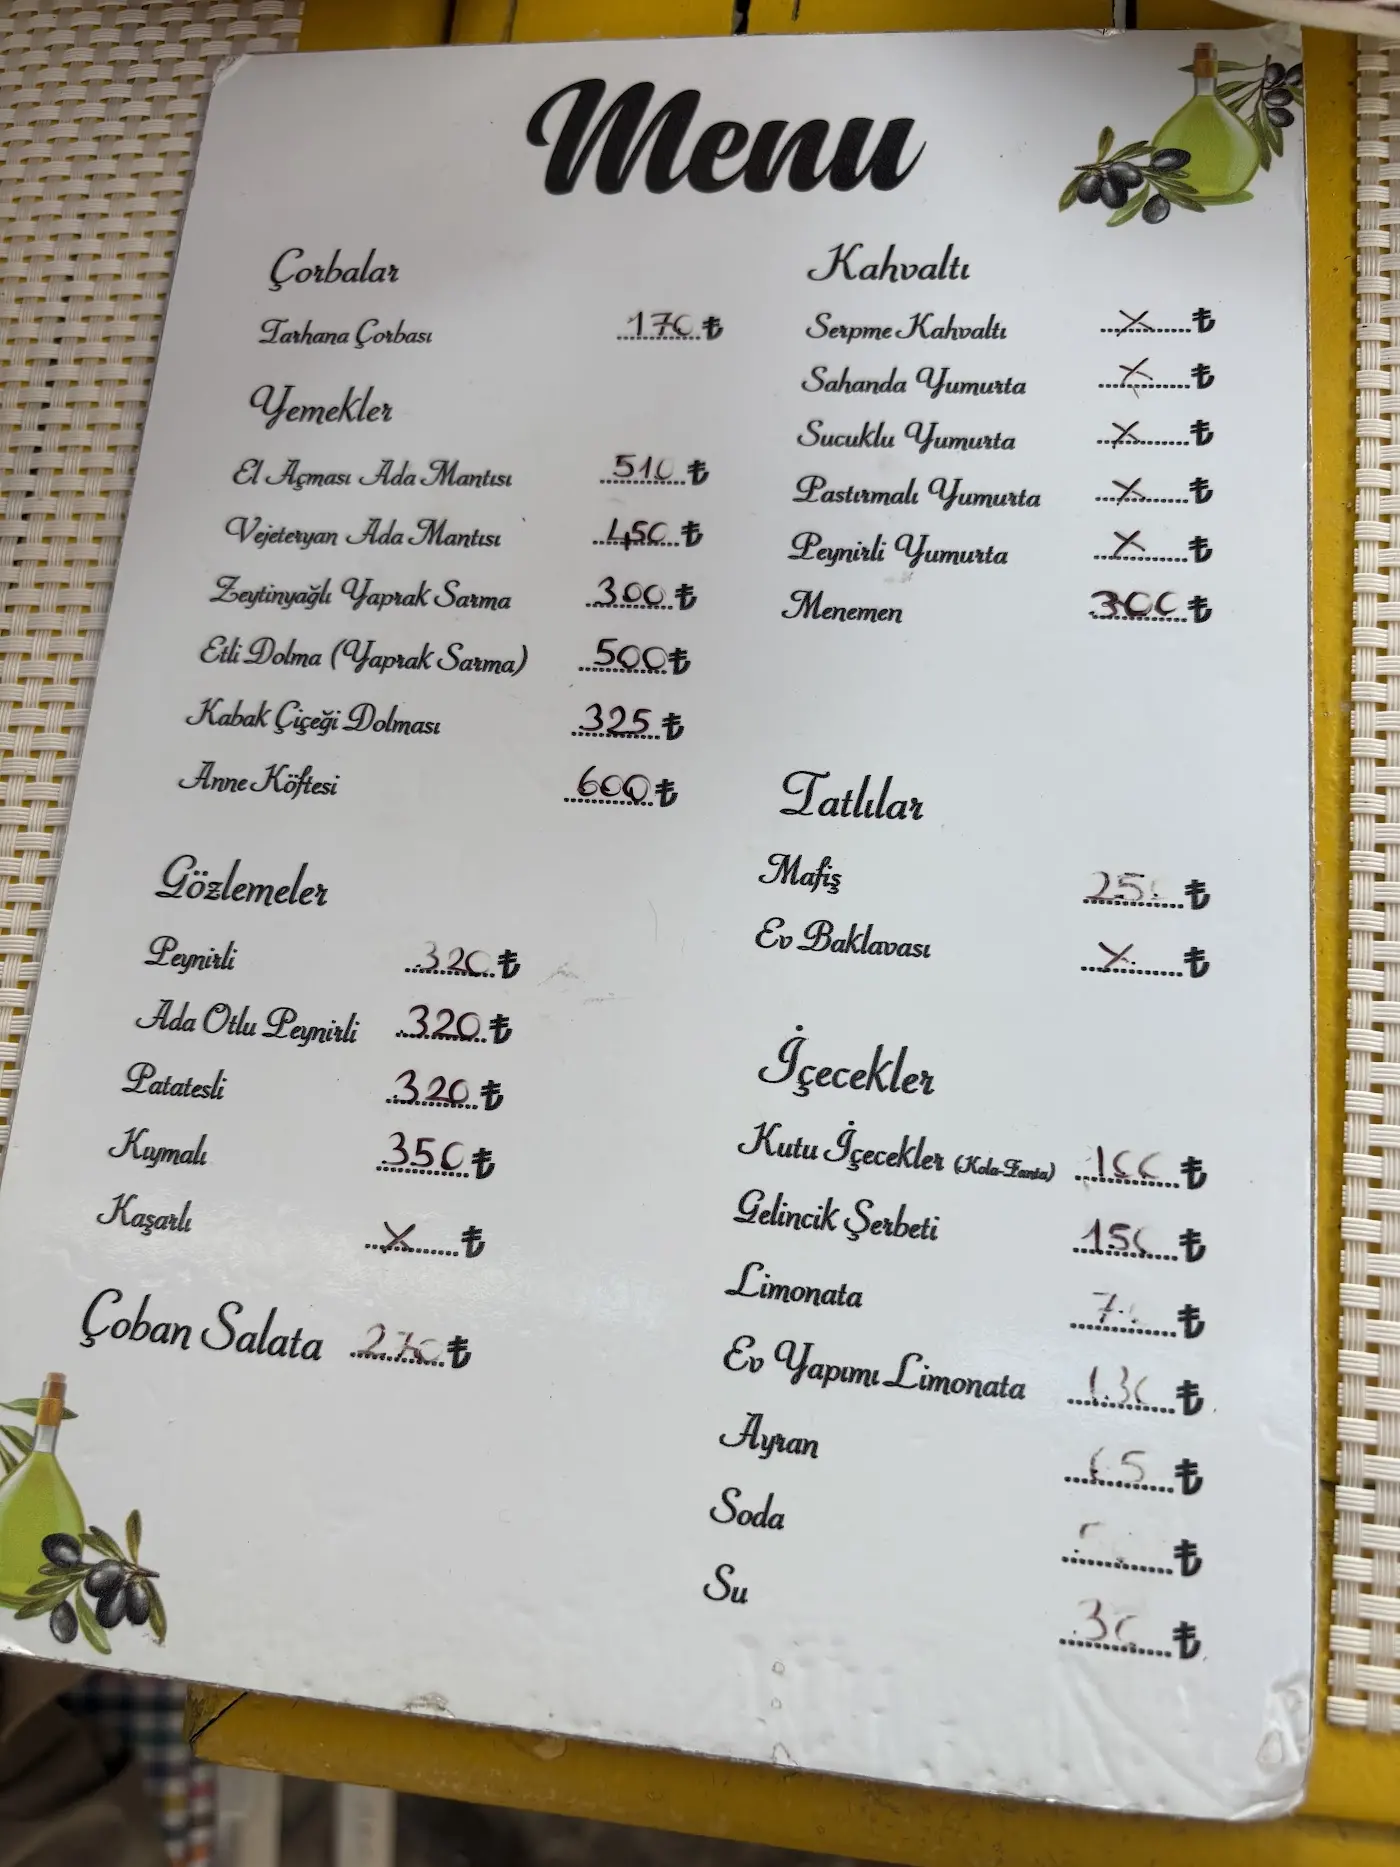 Menu
Çorbalar
Tarhana Çorbası 170 ₺
Yemekler
El Açması Ada Mantısı 510 ₺
Vejeteryan Ada Mantısı 450 ₺
Zeytinyağlı Yaprak Sarma 300 ₺
Etli Dolma (Yaprak Sarma) 500 ₺
Kabak Çiçeği Dolması 325 ₺
Anne Köftesi 600 ₺
Gözlemeler
Peynirli 320 ₺
Ada Otlu Peynirli 320 ₺
Patatesli 320 ₺
Kıymalı 350 ₺
Kaşarlı X ₺
Çoban Salata 270 ₺
Kahvaltı
Serpme Kahvaltı X ₺
Sahanda Yumurta X ₺
Sucuklu Yumurta X ₺
Pastırmalı Yumurta X ₺
Peynirli Yumurta X ₺
Menemen 300 ₺
Tatlılar
Mafiş ₺
Ev Baklavası X ₺
İçecekler
Kutu İçecekler (Kola-Fanta) 100 ₺
Gelincik Şerbeti 150 ₺
Limonata ₺
Ev Yapımı Limonata 130 ₺
Ayran 65 ₺
Soda ₺
Su 30 ₺